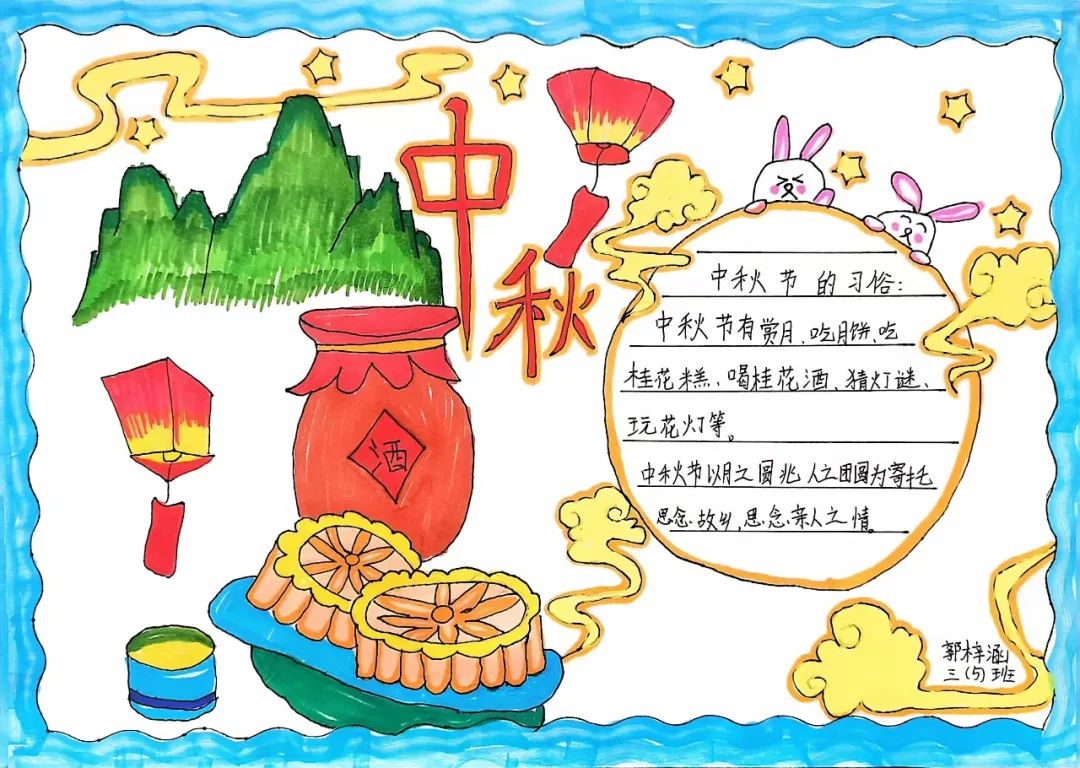 中
秋
酒
中秋节的习俗:
中秋节有赏月、吃月饼、吃
桂花糕、喝桂花酒、猜灯谜、
玩花灯等。
中秋节以月之圆兆人之团圆为寄托
思念故乡,思念亲人之情。
郭梓涵
三(5)班